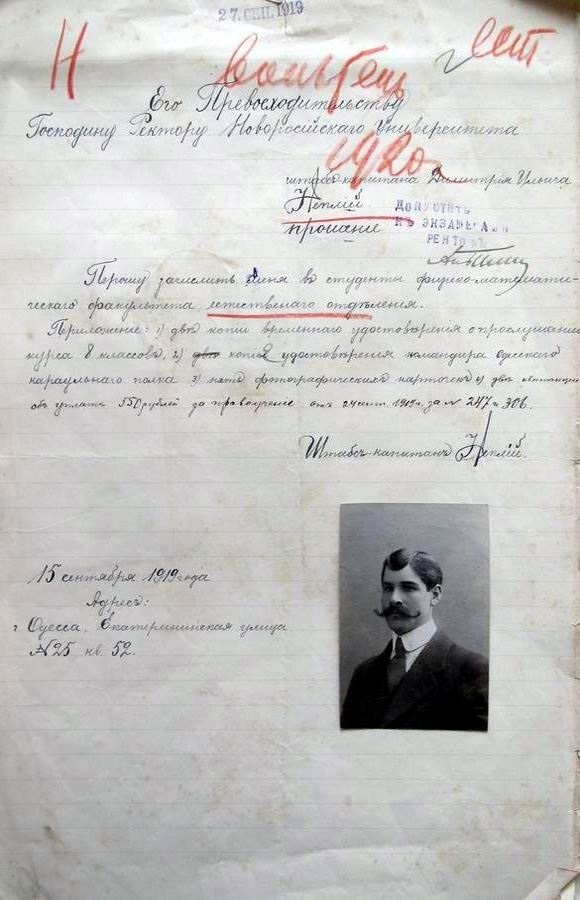 27 СЕН. 1919
Н Вольбец ест.
Его Превосходительству
Господину Ректору Новоросійскаго Университета
1920
штабс-капитана Димитрія Ильича
Неплій
прошение
ДОПУСТИТЬ
КЪ ЭКЗАМЕНАМ
РЕКТОРЪ
Прошу зачислить меня въ студенты физико-математи-
ческаго факультета естественаго отдѣленія.
Приложение: 1) двѣ копіи временнаго удостовѣрения о прослушании
курса 8 классовъ, 2) копія удостовѣрения командира одесскаго
караульнаго полка 3) пять фотографических карточекъ 4) двѣ квитанции
об уплатѣ 550 рублей за правоучение отъ 24 сент. 1919 г. за № 247 и 306.
Штабсъ-капитанъ Неплій.
15 сентября 1919 года
Адресъ:
г. Одесса, Екатерининская улица
№ 25 кв. 52.